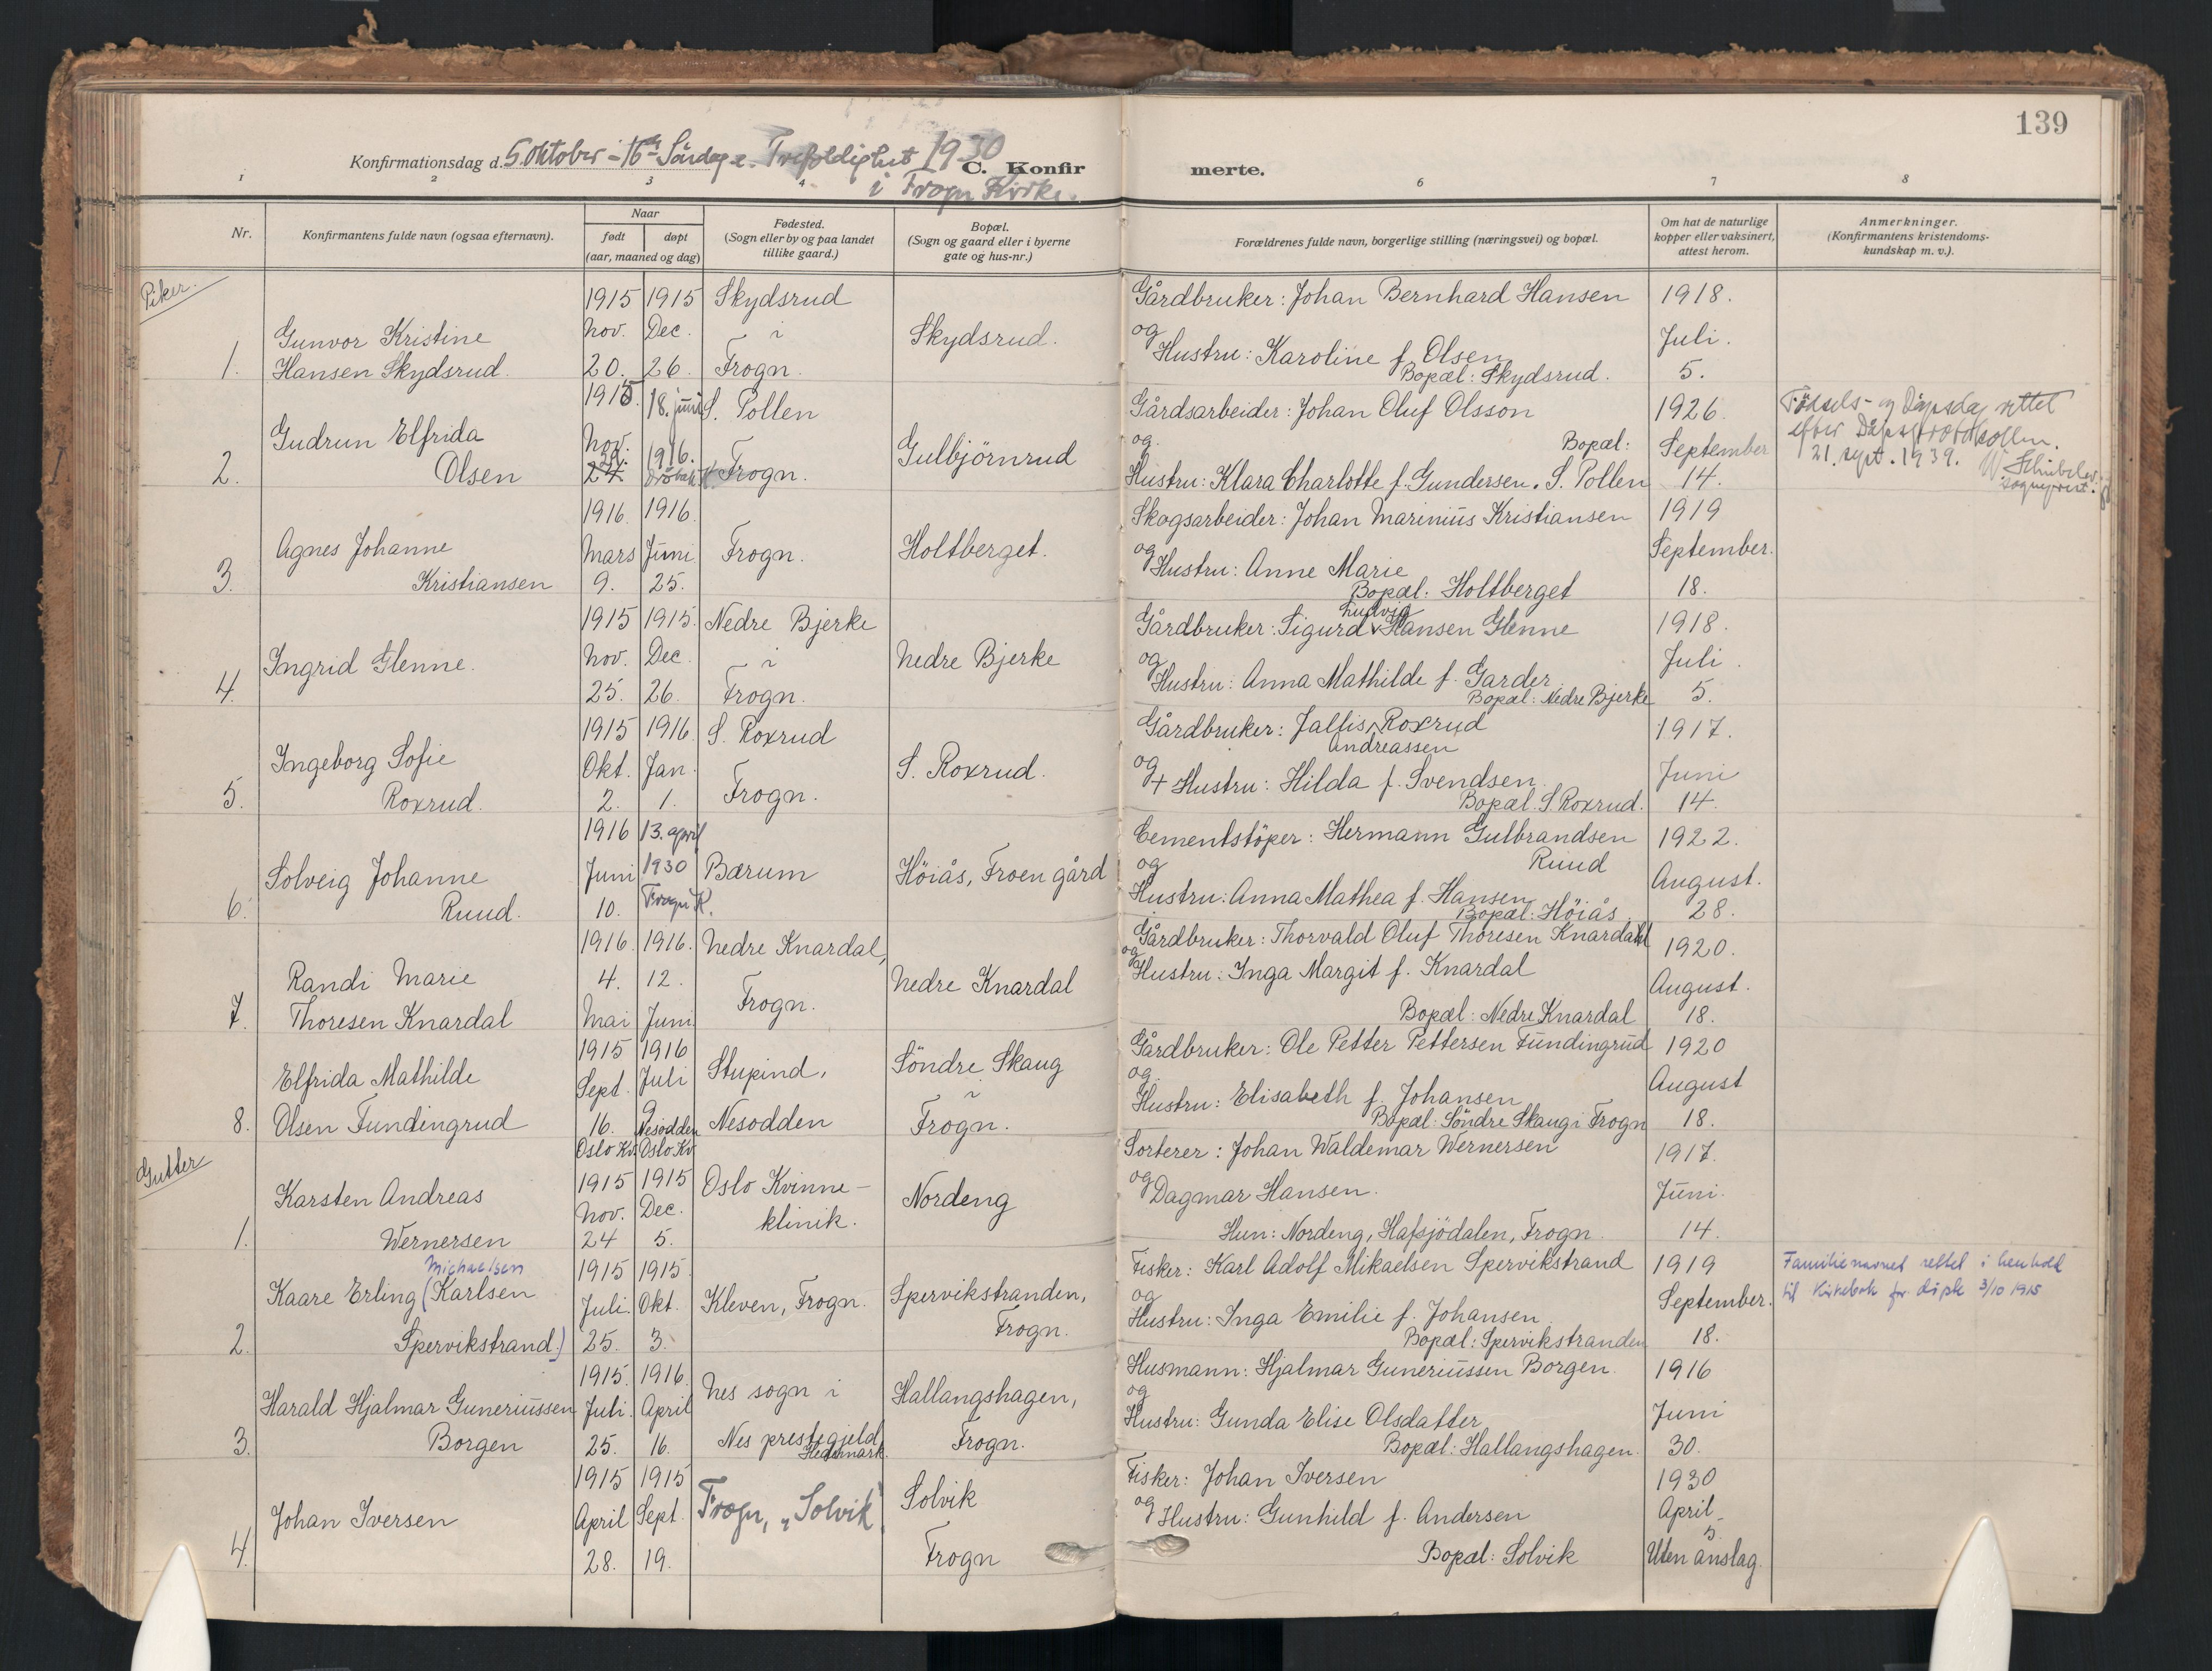 139
Konfirmationsdag d. 5. Oktober - 16de Söndag e. Trefoldighet 1930
C. Konfirmerte.
i Frogn Kirke.
1 2 3 4 6 7 8
Nr.
Konfirmantens fulde navn (ogsaa efternavn).
Naar
født døpt
(aar, maaned og dag)
Fødested.
(Sogn eller by og paa landet
tillike gaard.)
Bopæl.
(Sogn og gaard eller i byerne
gate og hus-nr.)
Forældrenes fulde navn, borgerlige stilling (næringsvei) og bopæl.
Om hat de naturlige
kopper eller vaksinert,
attest herom.
Anmerkninger.
(Konfirmantens kristendoms-
kundskap m. v.).
Piker.
1915 1915 Skydsrud Gårdbruker: Johan Bernhard Hansen 1918.
Gunvor Kristine Nov. Dec. i Skydsrud. og Juli.
Hustru: Karoline f. Olsen
1. Hansen Skydsrud. 20. 26. Frogn. Bopæl: Skydsrud. 5.
1915. 18. juni S. Pollen Gårdsarbeider: Johan Oluf Olsson 1926. Födsels- og Dåpsdag rettet
Gudrun Elfrida Nov. 1916. Gulbjörnrud og. Bopæl: September efter Dåpsprotokollen.
2. Olsen 24. Dröbak K. Frogn. Hustru: Klara Charlotte f. Gundersen. S. Pollen 14. 21. sept. 1939.
sogneprest.
1916. 1916. Skogsarbeider: Johan Marinius Kristiansen 1919
Agnes Johanne Mars Juni Frogn. Holtberget. og September.
Hustru: Anne Marie
3. Kristiansen 9. 25. Bopæl: Holtberget 18.
Ludvig
1915 1915. Nedre Bjerke Gårdbruker: Sigurd Hansen Glenne 1918.
Ingrid Glenne. Nov. Dec. i Nedre Bjerke og Juli.
Hustru: Anna Mathilde f. Garder
4. 25. 26. Frogn. Bopæl: Nedre Bjerke 5.
1915 1916. S. Roxrud Gårdbruker: Jallis Roxrud 1917.
Andreassen
Ingeborg Sofie Okt. Jan. S. Roxrud. og Juni
+ Hustru: Hilda f. Svendsen
5. Roxrud. 2. 1. Frogn. Bopæl. S. Roxrud. 14.
1916 13. april Cementstöper: Hermann Gulbrandsen 1922.
Ruud
Solveig Johanne Juni 1930 Bærum Höiås, Froen gård og August.
Hustru: Anna Mathea f. Hansen
6. Ruud. 10. Frogn K. Bopæl: Höiås. 28.
1916. 1916. Nedre Knardal, Gårdbruker: Thorvald Oluf Thoresen Knardahl 1920.
Randi Marie 4. 12. Nedre Knardal og Hustru: Inga Margit f. Knardal August.
7. Thoresen Knardal Mai Juni Frogn. Bopæl: Nedre Knardal 18.
1915 1916 Gårdbruker: Ole Petter Pettersen Fundingrud 1920
Elfrida Mathilde Sept. Juli Stupind, Söndre Skaug og. August
i Hustru: Elisabeth f. Johansen
8. Olsen Fundingrud 16. 9 Nesodden Nesodden Frogn. Bopæl: Söndre Skaug i Frogn 18.
Gutter
Oslo Kv. Oslo Kv. Sorterer: Johan Waldemar Wernersen 1917.
Karsten Andreas 1915 1915 Oslo Kvinne- Nordeng og Dagmar Hansen. Juni.
Nov. Dec. klinik.
1. Wernersen 24 5. Hun: Nordeng, Hafsjödalen, Frogn. 14.
Michaelsen 1915 1915. Fisker: Karl Adolf Mikaelsen Spervikstrand 1919 Familienavnet rettet i henhold
Kaare Erling (Karlsen Juli Okt. Kleven, Frogn. Spervikstranden, og September. til Kirkebok for døpte 3/10 1915
Frogn. Hustru: Inga Emilie f. Johansen
2. Spervikstrand.) 25. 3. Bopæl: Spervikstranden 18.
1915. 1916. Nes sogn i Husmann: Hjalmar Guneriussen Borgen. 1916
Harald Hjalmar Guneriussen Juli. April Hallangshagen, og Juni
Hustru: Gunda Elise Olsdatter
3. Borgen 25. 16. Nes prestegjeld, Hedemark. Frogn. Bopæl: Hallangshagen. 30.
1915 1915 Fisker: Johan Iversen 1930
Johan Iversen April Sept. Frogn, „Solvik" Solvik og Hustru: Gunhild f. Andersen April
5.
4. 28. 19. Frogn Bopæl: Solvik Uten anslag.